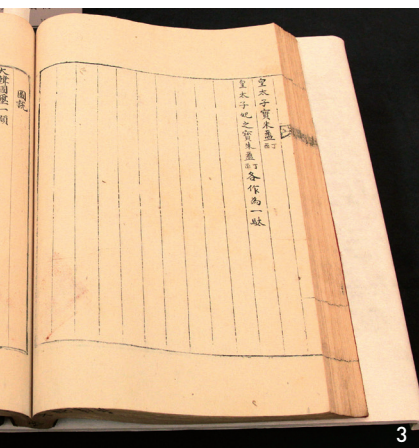 皇太子寶朱盝丁酉
皇太子妃之寶朱盝丁酉各作為一駄
圖說
大韓國璽一顆
3